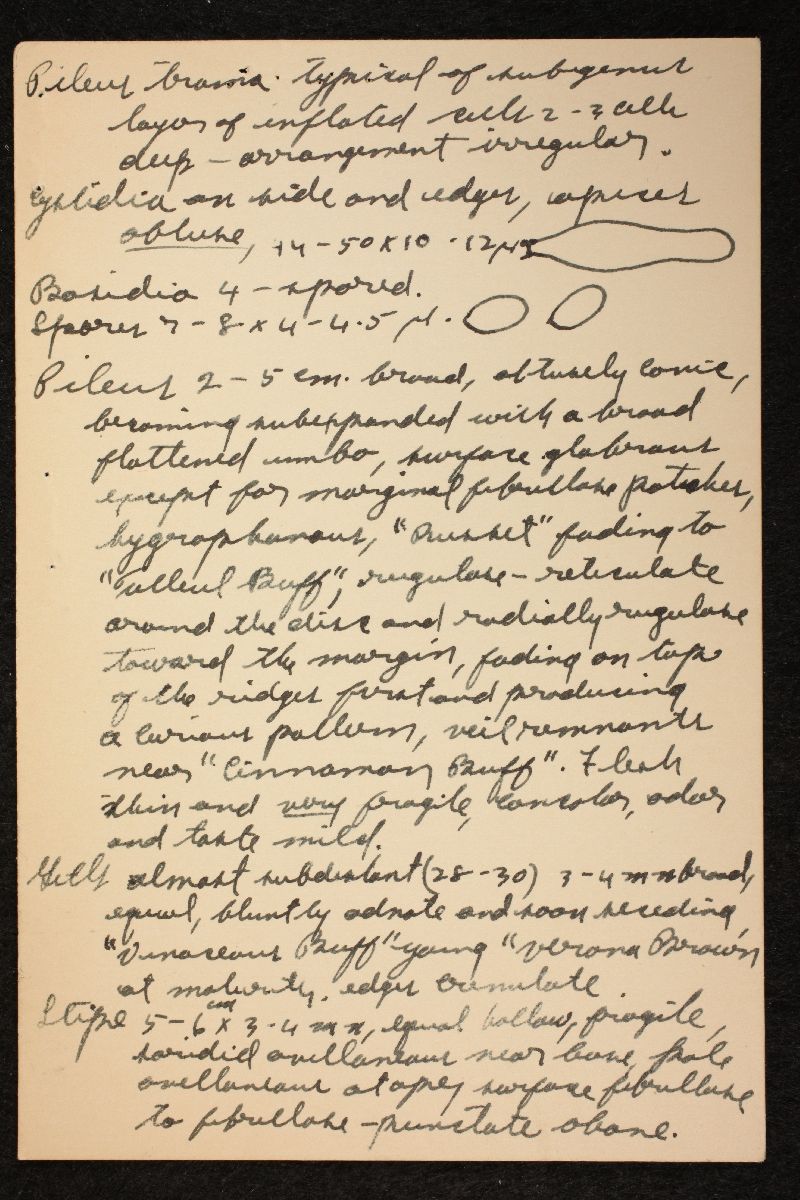 Pileus trama typical of subgenus
layer of inflated cells 2-3 cells
deep - arrangement irregular.
Cystidia on side and edges, apices
obtuse, 44-50 x 10-12 μ
Basidia 4-spored.
Spores 7-8 x 4-4.5 μ.
Pileus 2-5 cm. broad, obtusely conic,
becoming subexpanded with a broad
flattened umbo, surface glabrous
except for marginal fibrillose patches,
hygrophanous, "Russet" fading to
"Tilleul Buff", rugulose-reticulate
around the disc and radially rugulose
toward the margin, fading on tops
of the ridges first and producing
a curious pattern, veil remnants
near "Cinnamon Buff". Flesh
thin and very fragile, concolor, odor
and taste mild.
Gills almost subdistant (28-30) 3-4 mm broad,
equal, bluntly adnate and soon seceding,
"Vinaceous Buff" young "Verona Brown"
at maturity, edges crenulate
Stipe 5-6 cm x 3-4 mm, equal hollow, fragile,
sordid avellaneous near base, pale
avellaneous at apex, surface fibrillose
to fibrillose-punctate above.